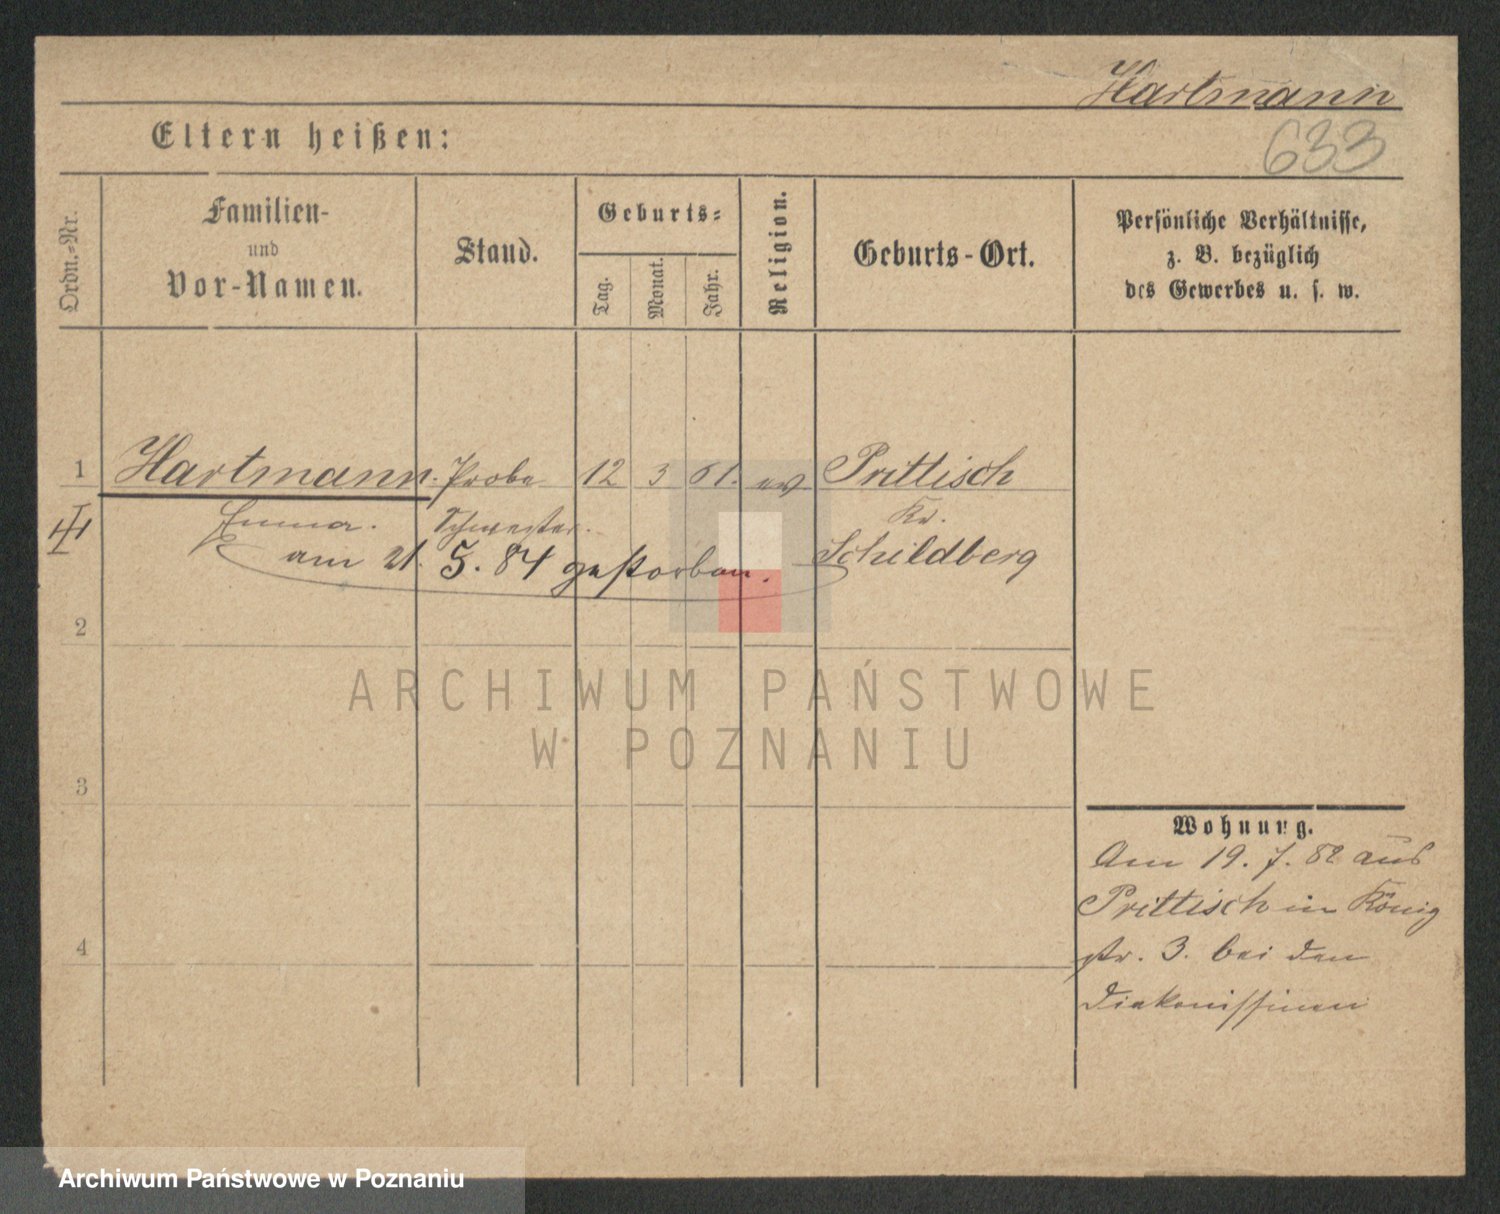 Hartmann
Eltern heißen:
633
Ordn.-Nr.
Familien-
und
Vor-Namen.
Stand.
Geburts-
Tag.
Monat.
Jahr.
Religion.
Geburts-Ort.
Persönliche Verhältnisse,
z. B. bezüglich
des Gewerbes u. s. w.
1 Hartmann. Probe 12 3 61. ev Prittisch
Emma. Schwester. Kr.
am 21. 5. 84 gestorben. Schildberg
2
3
4
Wohnung.
Am 19. 7. 82 aus
Prittisch in König
str. 3. bei den
Diakonissinen
ARCHIWUM PAŃSTWOWE
W POZNANIU
Archiwum Państwowe w Poznaniu